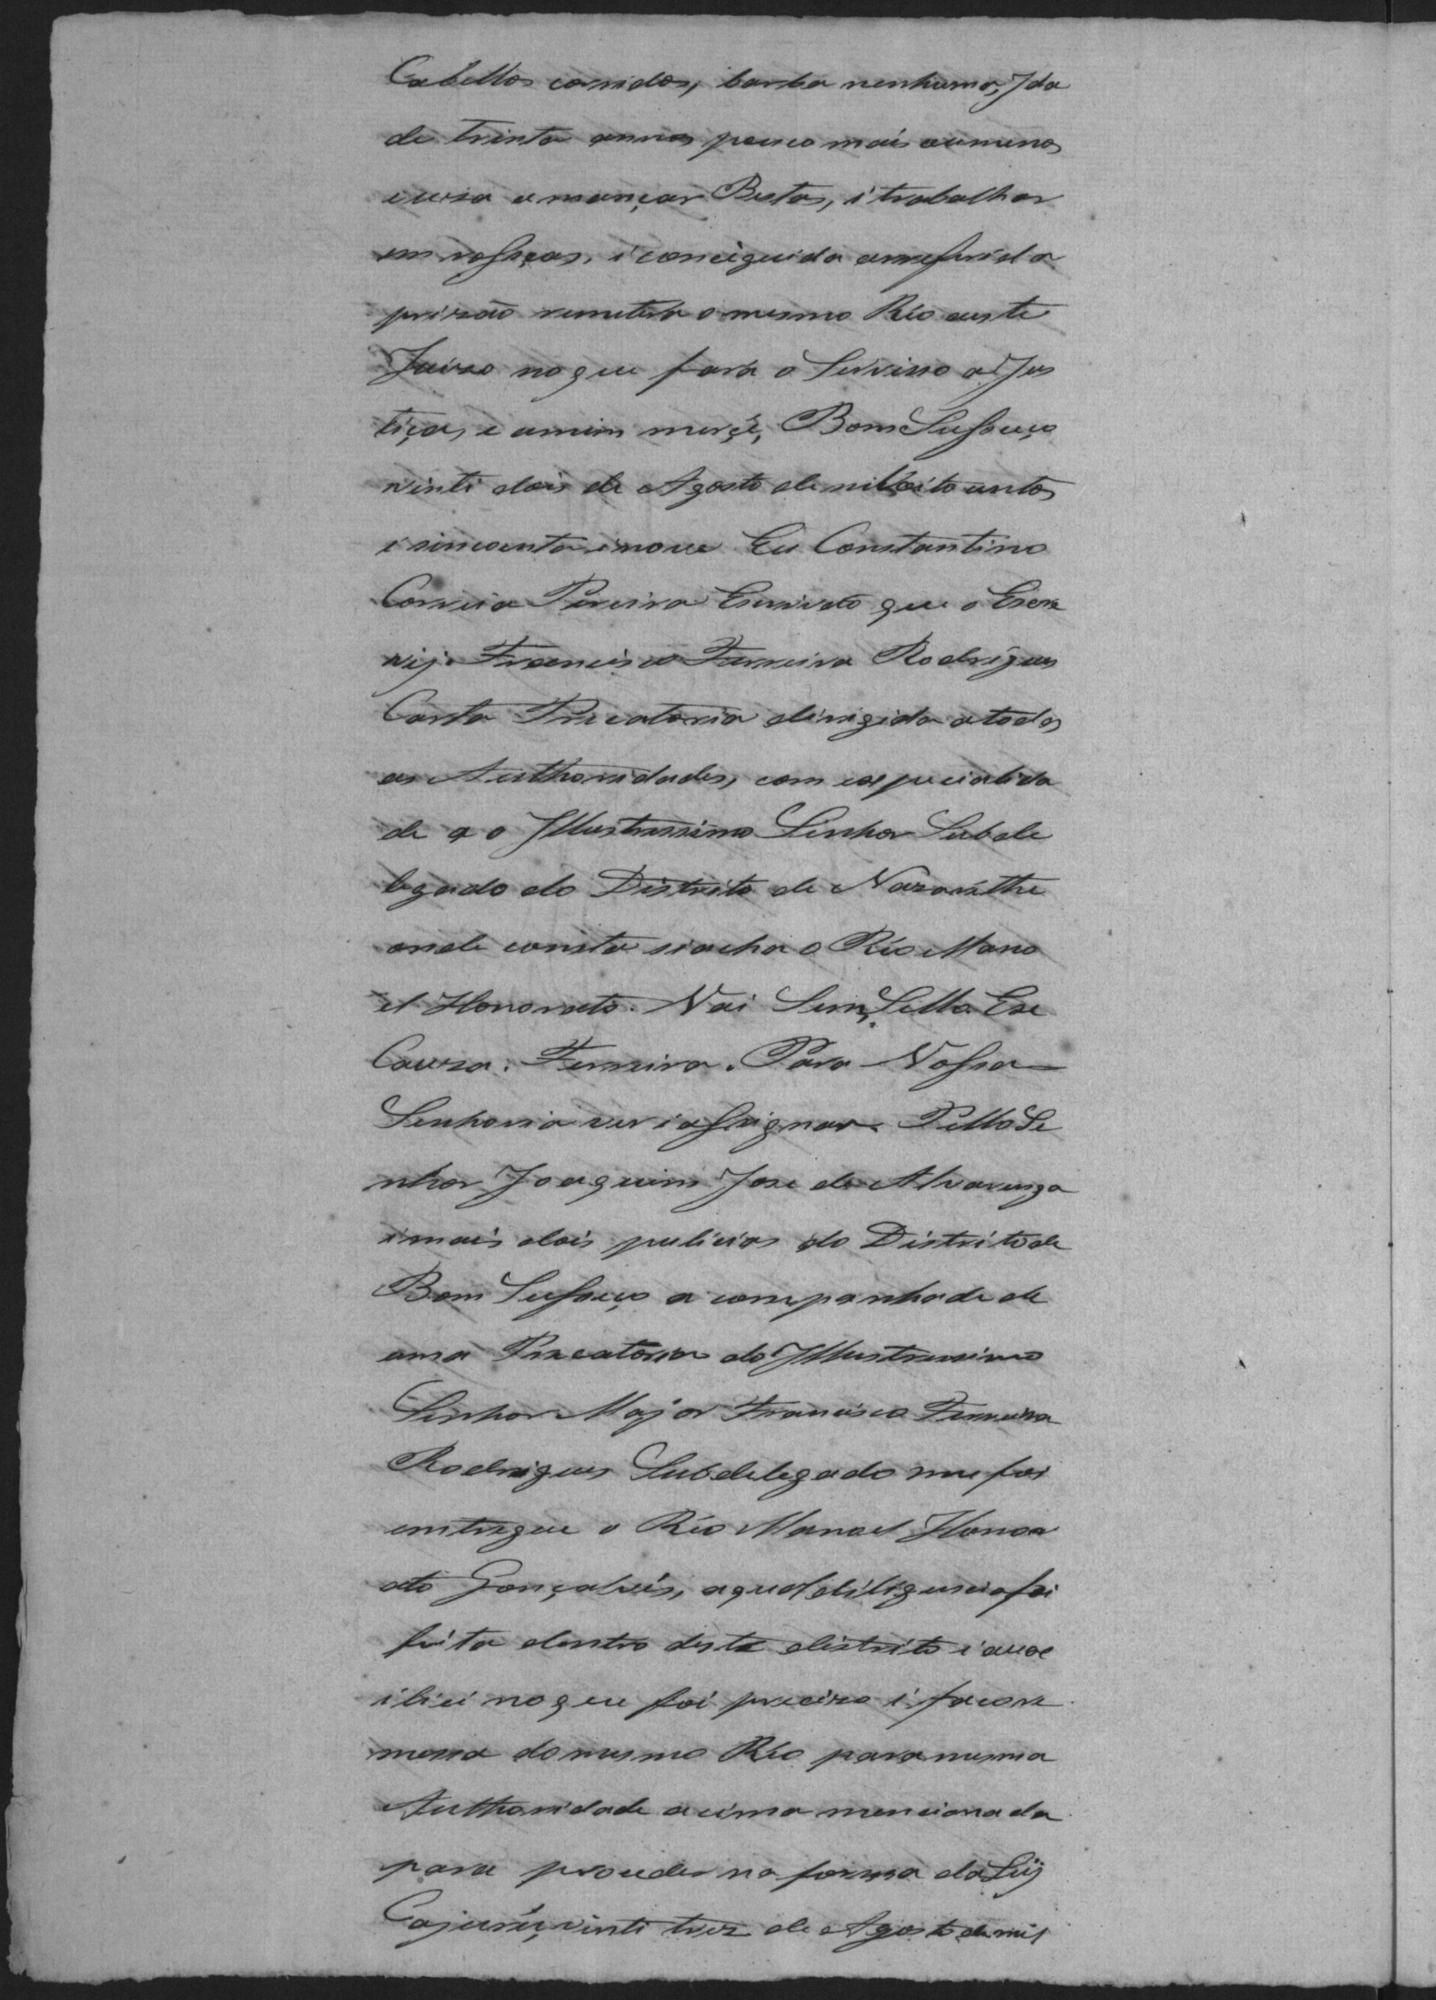 Cabellos corridos, barba nenhuma, Ida
de trinta annos pouco mais oumenos
euza amançar Bestas, i trabalhar
em rossças, i conciguida arrefirida
prizaõ remeterá o mesmo Réo aeste
Juizo noque fará o Servisso a Jus
tiça, e amim mercê, Bom Sussesço
vinti dois de Agosto de mil oito centos
e sincoenta enove Eu Constantino
Correia Pereira Escrivaõ que o Escre
vij. Francisco Ferreira Rodrigues
Carta Precatoria dirigida atodas
as Authoridades, com especialida
de ao Illustrissimo Senhor Subde
legado do Distrito de Nazarethe
onde consta siacha o Réo Mano
el Honorato. Vai Sem Sello Exe
Cauza. Ferreira. Para Vossa
Senhoria ver i assignar. Pello Se
nhor Joaquim Jose de Alvarenga
imais dois pulicias do Distrito de
Bom Sussesço acompanhado de
uma Precatoria do Illustrissimo
Senhor Major Francisco Ferreira
Rodrigues Subdelegado me foi
entregue o Réo Manoel Honor
ato Gonçalvés, aqual diligencia foi
feita dentro deste distrito i aux
iliei noque foi precizo i faço re
messa domesmo Réo para mesma
Authoridade acima mencionada
para proceder na forma da Leij
Cajurú, vinti trez de Agosto de mil